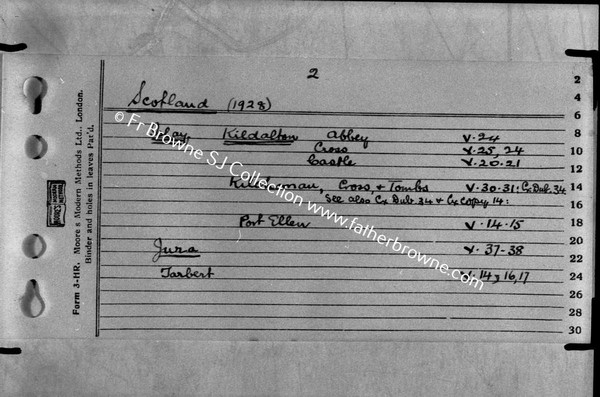 2
Scotland (1928)
Islay Kildalton Abbey V. 24
Cross V. 25, 24
Castle V. 20.21
Cross, & Tombs V. 30.31: Cx Dub. 34
See also Cx Dub. 34 & Cx Copy 14:
Port Ellen V. 14.15
Jura V. 37-38
Tarbert V. 14, 16, 17
2
4
6
8
10
12
14
16
18
20
22
24
26
28
30
Form 3-HR. Moore's Modern Methods Ltd., London.
Binder and holes in leaves Pat'd.
© Fr Browne SJ Collection www.fatherbrowne.com